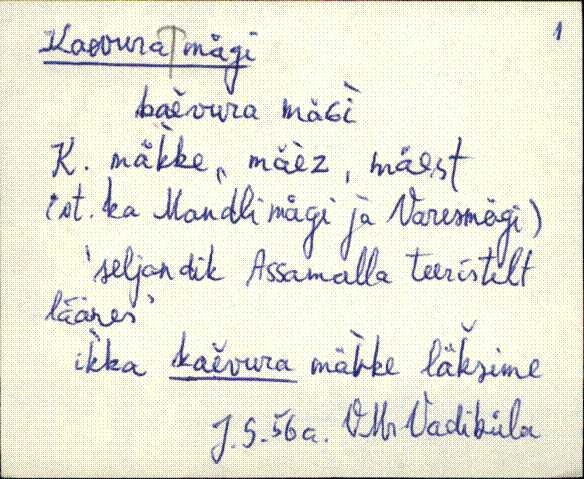 1
Kaevura mägi
kaèvura mäGì
K. mäk̀ke, mäèz, mäest
(st. ka Mandli mägi ja Varesmägi)
'seljandik Assamalla teeristilt
läänes'
ik̀ka kaèvura mäk̀ke läk̆sime
J. S. 56 a. VMr Vadiküla